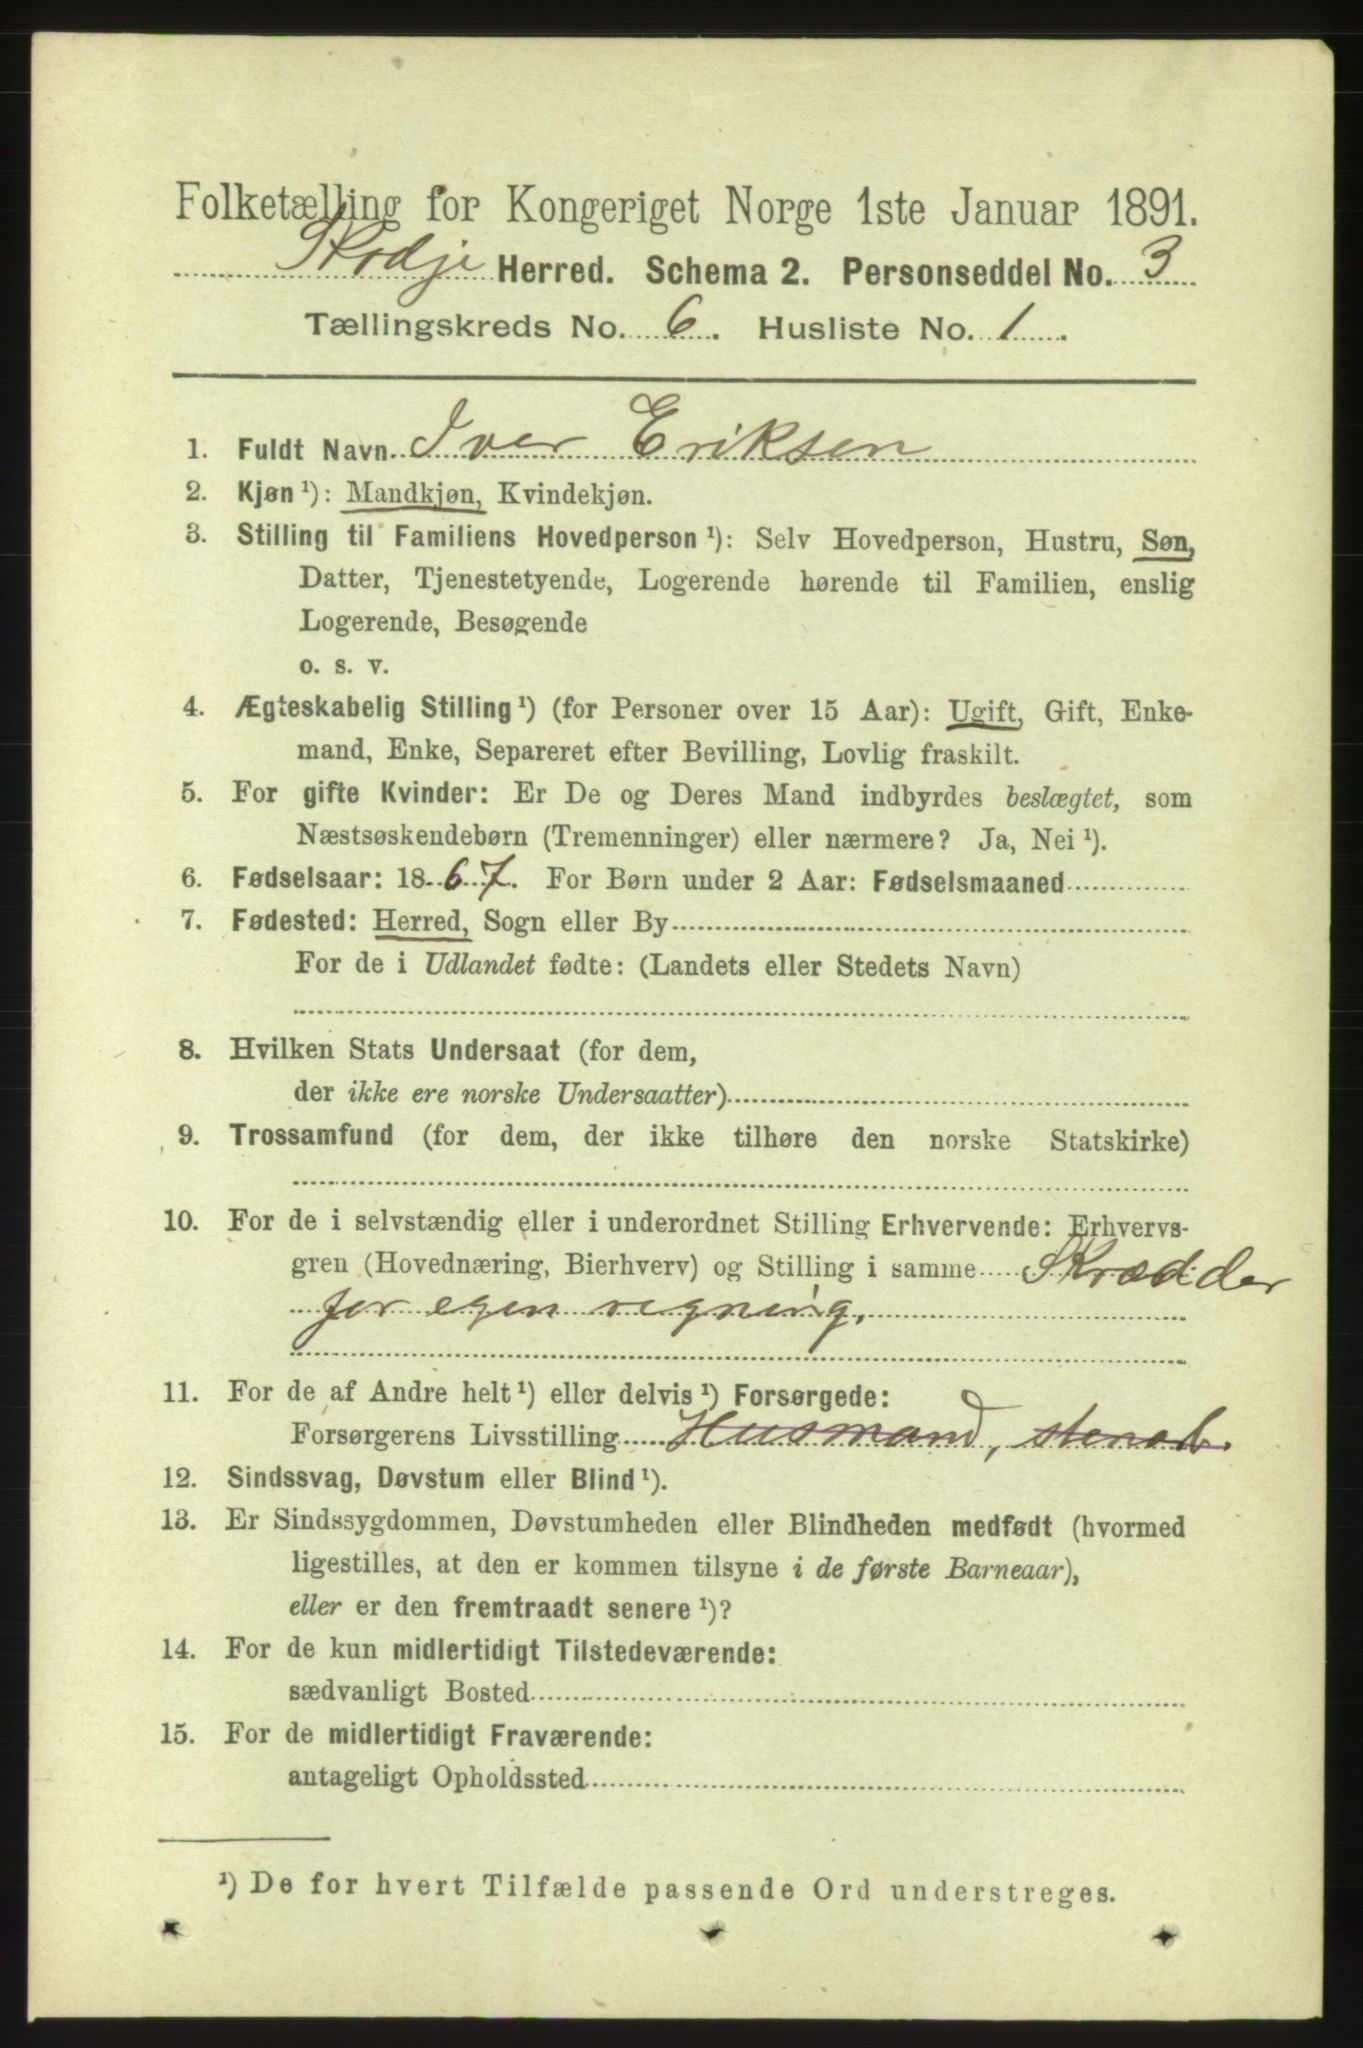 Folketælling for Kongeriget Norge 1ste Januar 1891.
Skodje Herred. Schema 2. Personseddel No. 3
Tællingskreds No. 6. Husliste No. 1.
1. Fuldt Navn. Iver Eriksen
2. Kjøn ¹): Mandkjøn, Kvindekjøn.
3. Stilling til Familiens Hovedperson ¹): Selv Hovedperson, Hustru, Søn,
Datter, Tjenestetyende, Logerende hørende til Familien, enslig
Logerende, Besøgende
o. s. v.
4. Ægteskabelig Stilling ¹) (for Personer over 15 Aar): Ugift, Gift, Enke-
mand, Enke, Separeret efter Bevilling, Lovlig fraskilt.
5. For gifte Kvinder: Er De og Deres Mand indbyrdes beslægtet, som
Næstsøskendebørn (Tremenninger) eller nærmere? Ja, Nei ¹).
6. Fødselsaar: 1867. For Børn under 2 Aar: Fødselsmaaned
7. Fødested: Herred, Sogn eller By
For de i Udlandet fødte: (Landets eller Stedets Navn)
8. Hvilken Stats Undersaat (for dem,
der ikke ere norske Undersaatter)
9. Trossamfund (for dem, der ikke tilhøre den norske Statskirke)
10. For de i selvstændig eller i underordnet Stilling Erhvervende: Erhvervs-
gren (Hovednæring, Bierhverv) og Stilling i samme Skrædder
for egen regning.
11. For de af Andre helt ¹) eller delvis ¹) Forsørgede:
Forsørgerens Livsstilling Husmand, stenarb.
12. Sindssvag, Døvstum eller Blind ¹).
13. Er Sindssygdommen, Døvstumheden eller Blindheden medfødt (hvormed
ligestilles, at den er kommen tilsyne i de første Barneaar),
eller er den fremtraadt senere ¹)?
14. For de kun midlertidigt Tilstedeværende:
sædvanligt Bosted
15. For de midlertidigt Fraværende:
antageligt Opholdssted
¹) De for hvert Tilfælde passende Ord understreges.